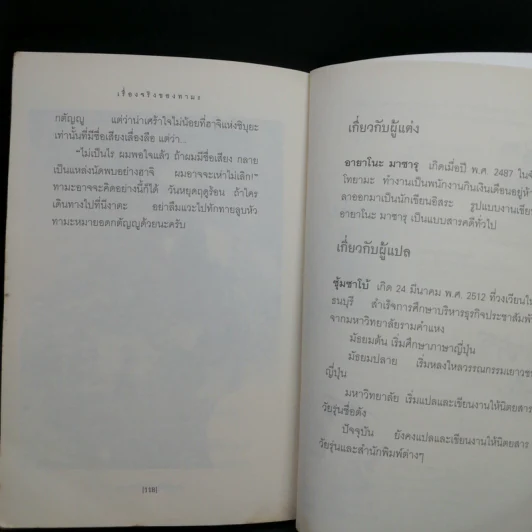 เรื่องจริงของทามะ
กตัญญู แต่ว่าน่าเศร้าใจไม่น้อยที่ฮาจิแห่งชิบุยะ
เท่านั้นที่มีชื่อเสียงเลื่องลือ แต่ว่า...
"ไม่เป็นไร ผมพอใจแล้ว ถ้าผมมีชื่อเสียง กลาย
เป็นแหล่งนัดพบอย่างฮาจิ ผมอาจจะเห่าไม่เลิก!"
ทามะอาจจะคิดอย่างนี้ก็ได้ วันหยุดฤดูร้อน ถ้าใคร
เดินทางไปที่นีงาตะ อย่าลืมแวะไปทักทายลูบหัว
ทามะหมายอดกตัญญูด้วยนะครับ
[118]
เกี่ยวกับผู้แต่ง
อายาโนะ มาซารุ เกิดเมื่อปี พ.ศ. 2487 ในจั
โทยามะ ทำงานเป็นพนักงานกินเงินเดือนอยู่ห้
ลาออกมาเป็นนักเขียนอิสระ รูปแบบงานเขีย
อายาโนะ มาซารุ เป็นแบบสารคดีทั่วไป
เกี่ยวกับผู้แปล
ซุ้มซาโบ้ เกิด 24 มีนาคม พ.ศ. 2512 ที่วงเวียนให
ธนบุรี สำเร็จการศึกษาบริหารธุรกิจประชาสัมพั
จากมหาวิทยาลัยรามคำแหง
มัธยมต้น เริ่มศึกษาภาษาญี่ปุ่น
มัธยมปลาย เริ่มหลงใหลวรรณกรรมเยาวช
ญี่ปุ่น
มหาวิทยาลัย เริ่มแปลและเขียนงานให้นิตยสาร
วัยรุ่นชื่อดัง
ปัจจุบัน ยังคงแปลและเขียนงานให้นิตยสาร
วัยรุ่นและสำนักพิมพ์ต่างๆ